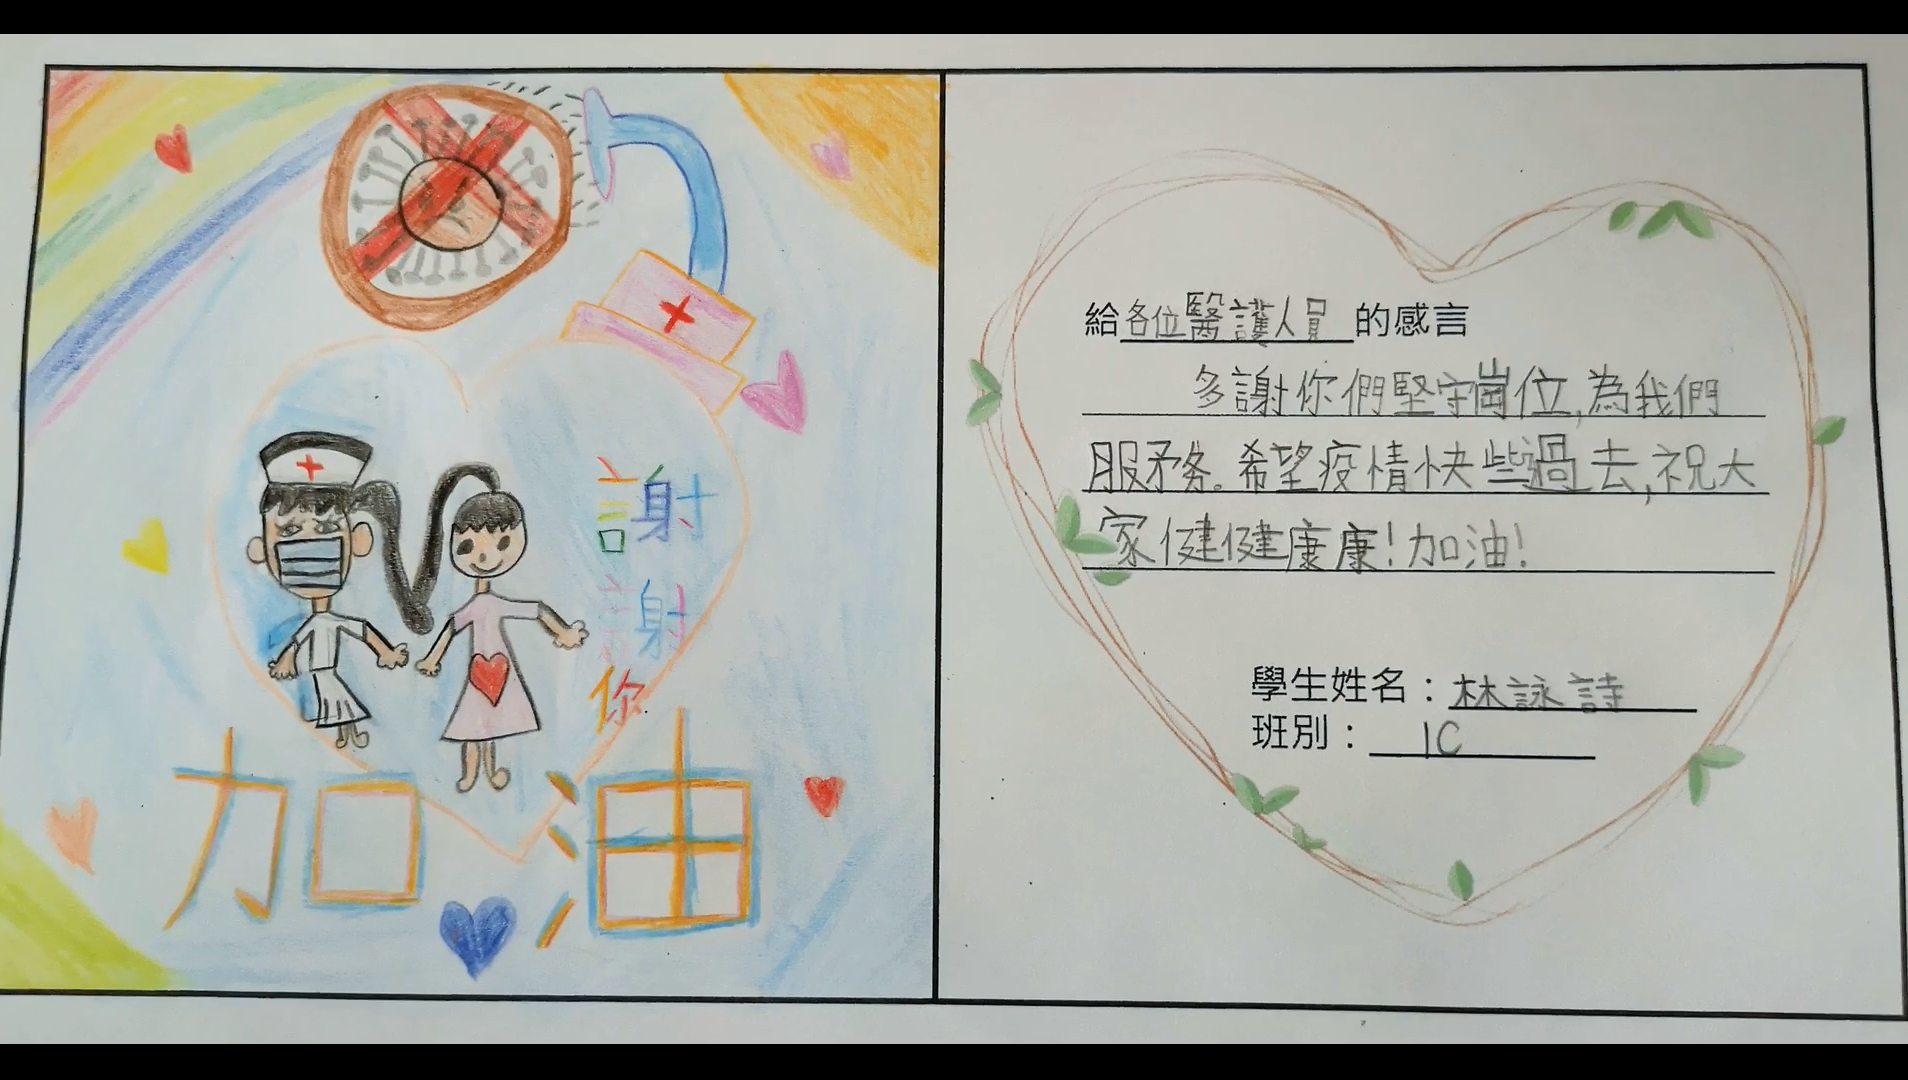 謝
謝
你
加油
給各位醫護人員的感言
多謝你們堅守崗位,為我們
服務。希望疫情快些過去,祝大
家健健康康!加油!
學生姓名:林詠詩
班別:1C